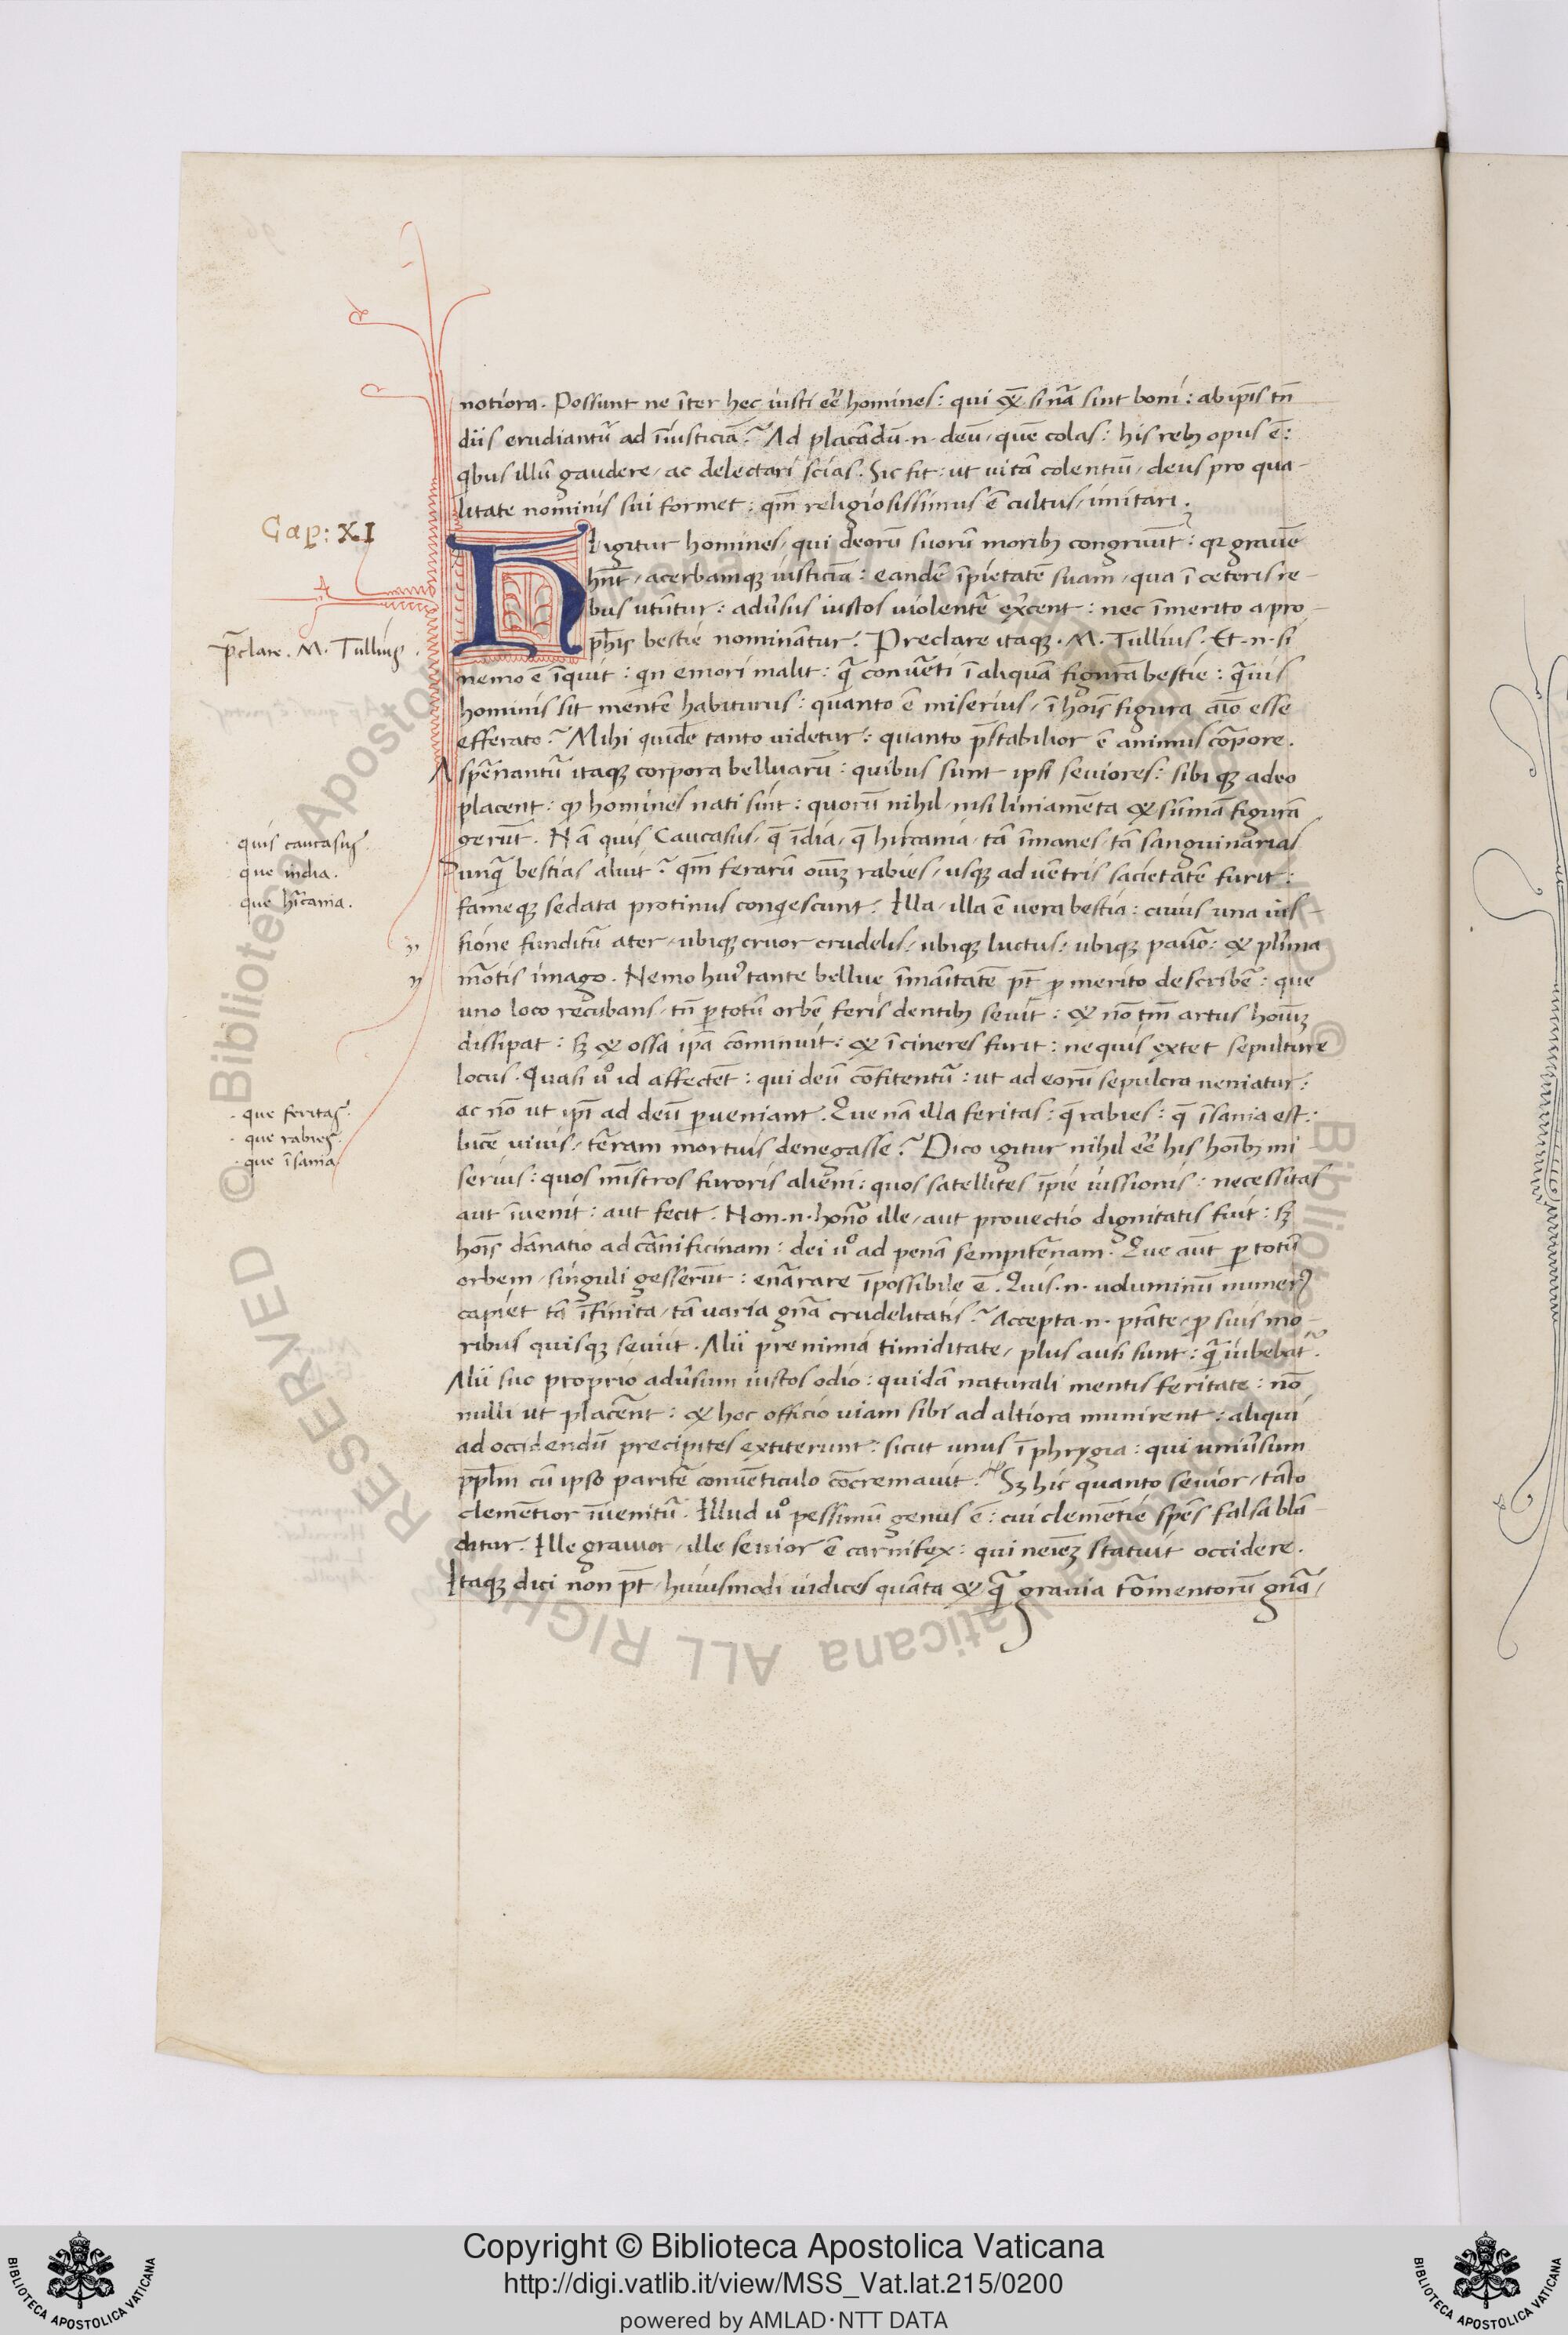 notiora. Possunt ne ĩter hec iusti eẽ homines: qui & si nã sint boni: ab ip̃is tñ
diis erudiantũ ad iĩusticiã? Ad placãdũ .n. deũ, quẽ colas: his reb; opus ẽ:
q̃bus illũ gaudere, ac delectari scias. Sic fit: ut uitã colentiũ, deus pro qua-
litate nominis sui formet: qm̃ religiosissimus ẽ cultus, imitari.
Cap: XI
HI igitur homines, qui deorũ suorũ morib; congruũt: qr grauẽ
hñt, acerbamq; iusticiã: eandẽ ĩpietatẽ suam, qua ĩ ceteris re-
bus utũtur: adũsus iustos uiolentẽ ex̃cent: nec ĩmerito a pro-
ph̃is bestie nominãtur. Preclare itaq; .M. Tullius. Et .n. si
p̃clare. M. Tullius.
nemo ẽ ĩquit: qin emori malit: q̃ conũti ĩ aliquã figurã bestie: q̃uis
hominis sit mentẽ habiturus: quanto ẽ miserius, ĩ hoĩs figura aĩo esse
efferato? Mihi quidẽ tanto uidetur: quanto p̃stabilior ẽ animus cõpore.
Aspẽnantũ itaq; corpora belluarũ: quibus sunt ipsi seuiores: sibi q; adeo
placent: q̃ homines nati sint: quorũ nihil, nisi liniamẽta & sũmã figurã
gerũt. Nã quis Caucasus, q̃ ĩdia, q̃ hircania, tã ĩmanes, tã sanguinarias
unq̃ bestias aluit? qm̃ ferarũ oiũ; rabies, usq; ad uẽtris sacietãtẽ furit:
fameq; sedata protinus conqescunt. Illa, illa ẽ uera bestia: cuius una ius-
quis caucasus.
que india.
que hĩcania.
sione funditũ ater, ubiq; cruor crudelis, ubiq; luctus: ubiq; pauõ: & plĩma
mõtis imago. Nemo huĩ tante bellue ĩmãitatẽ pt̃ p merito describẽ: que
uno loco recubans, tñ p totũ orbẽ feris dentib; seuit: & nõ tm̃ artus hoiũ;
dissipat: s; & ossa ip̃a cõminuit: & ĩ cineres furit: ne quis extet sepulture
locus. Quasi ũo id affectẽt: qui deũ cõfitentũ: ut ad eorũ sepulcra ueniatur:
ac nõ ut ip̃i ad deũ perueniant. Que nã illa feritas: q̃ rabies: q̃ ĩsania est:
lucẽ uiuis, tẽram mortuis denegasse? Dico igitur nihil eẽ his hoĩb; mi
serius: quos mĩstros furoris alieni: quos satellites ĩpie iussionis: necessitas
que feritas.
que rabies.
que ĩsania.
aut ĩuenit: aut fecit. Non .n. honõ ille, aut prouectio dignitatis fuit: s;
hoĩs dãnatio ad cãnificinam: dei ũo ad penã sempitẽnam. Que aũt p totũ
orbem, singuli gessẽrũt: enãrare ĩpossibile ẽ. Quis .n. uoluminũ numerus
capiet tã ĩfinita, tã uaria gñã crudelitatis? Accepta .n. ptãte, p suis mo-
ribus quisq; seuiit. Alii pre nimiã timiditate, plus ausi sunt: q̃ iubebãt.
Alii suo proprio adũsum iustos odio: quidã naturali mentis feritate: nõ
nulli ut placẽent: & hoc officio uiam sibi ad altiora munirent: aliqui
ad occidendũ precipites extiterunt: sicut unus ĩ phrygia: qui uniũsum
pp̃lm cũ ipso paritẽ conuẽticulo cõcremauit. S; hic quanto seuior, tãto
clemẽtior ĩuenitũ. Illud ũo pessimũ genus ẽ: cui clemẽtie spẽs falsa blã
ditur. Ille grauior, ille seuior ẽ carnifex: qui neiẽ; statuit occidere.
Itaq; dici non pt̃, huiusmodi iudices quãta & q̃ grauia tõmentorũ gñã,
Copyright © Biblioteca Apostolica Vaticana
http://digi.vatlib.it/view/MSS_Vat.lat.215/0200
powered by AMLAD·NTT DATA
© Biblioteca Apostolica Vaticana ALL RIGHTS RESERVED
BIBLIOTECA APOSTOLICA VATICANA
BIBLIOTECA APOSTOLICA VATICANA